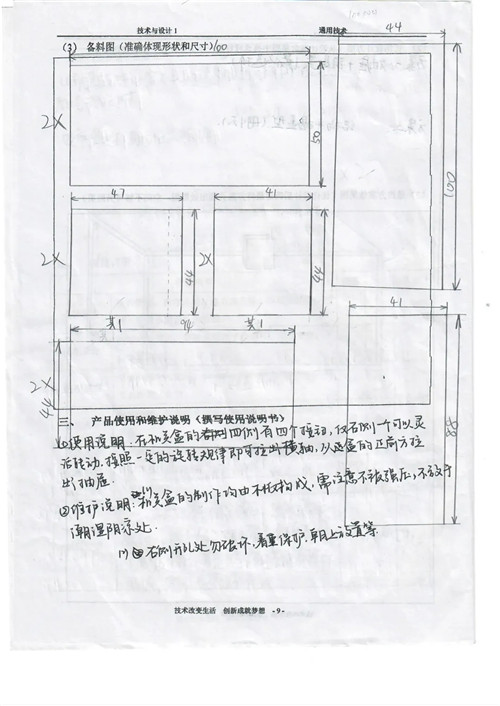 技术与设计 1 通用技术
(3) 备料图(准确体现形状和尺寸)
100
44
2X
50
100
47
41
2X
44
2X
44
共1
94
共1
41
2X
44
88
三、 产品使用和维护说明(撰写使用说明书)
①使用说明:在机关盒的四侧有四个推动,仅右侧一个可以灵
活转动,按照一定的旋转规律即可拉出横轴,从这盒的正前方拉
出抽屉.
②维护说明:机关盒的制作均由木板构成,需注意不被强压,不放于
潮湿阴凉处.
右侧开孔处勿破坏,着重保护.朝上放置等.
技术改变生活 创新成就梦想 -9-